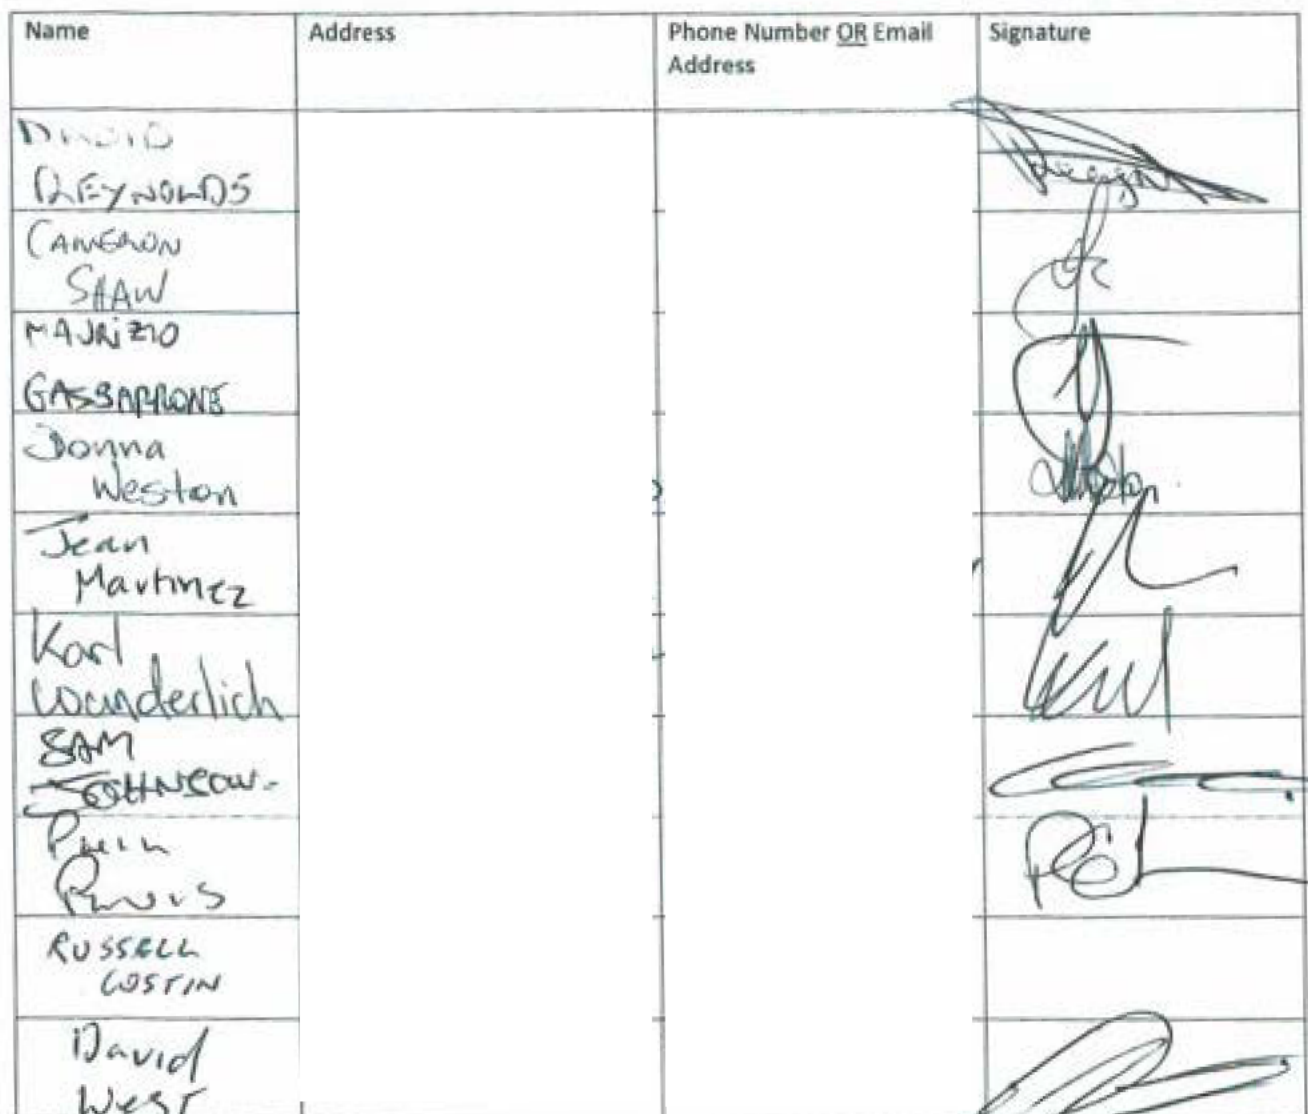 Name Address Phone Number OR Email Address Signature
DAVID
REYNOLDS
CAMERON
SHAW
MAURIZIO
GASBARRONE
Donna
Weston
Jean
Martinez
Karl
Wunderlich
SAM
JOHNSON.
RUSSELL
COSTIN
David
West